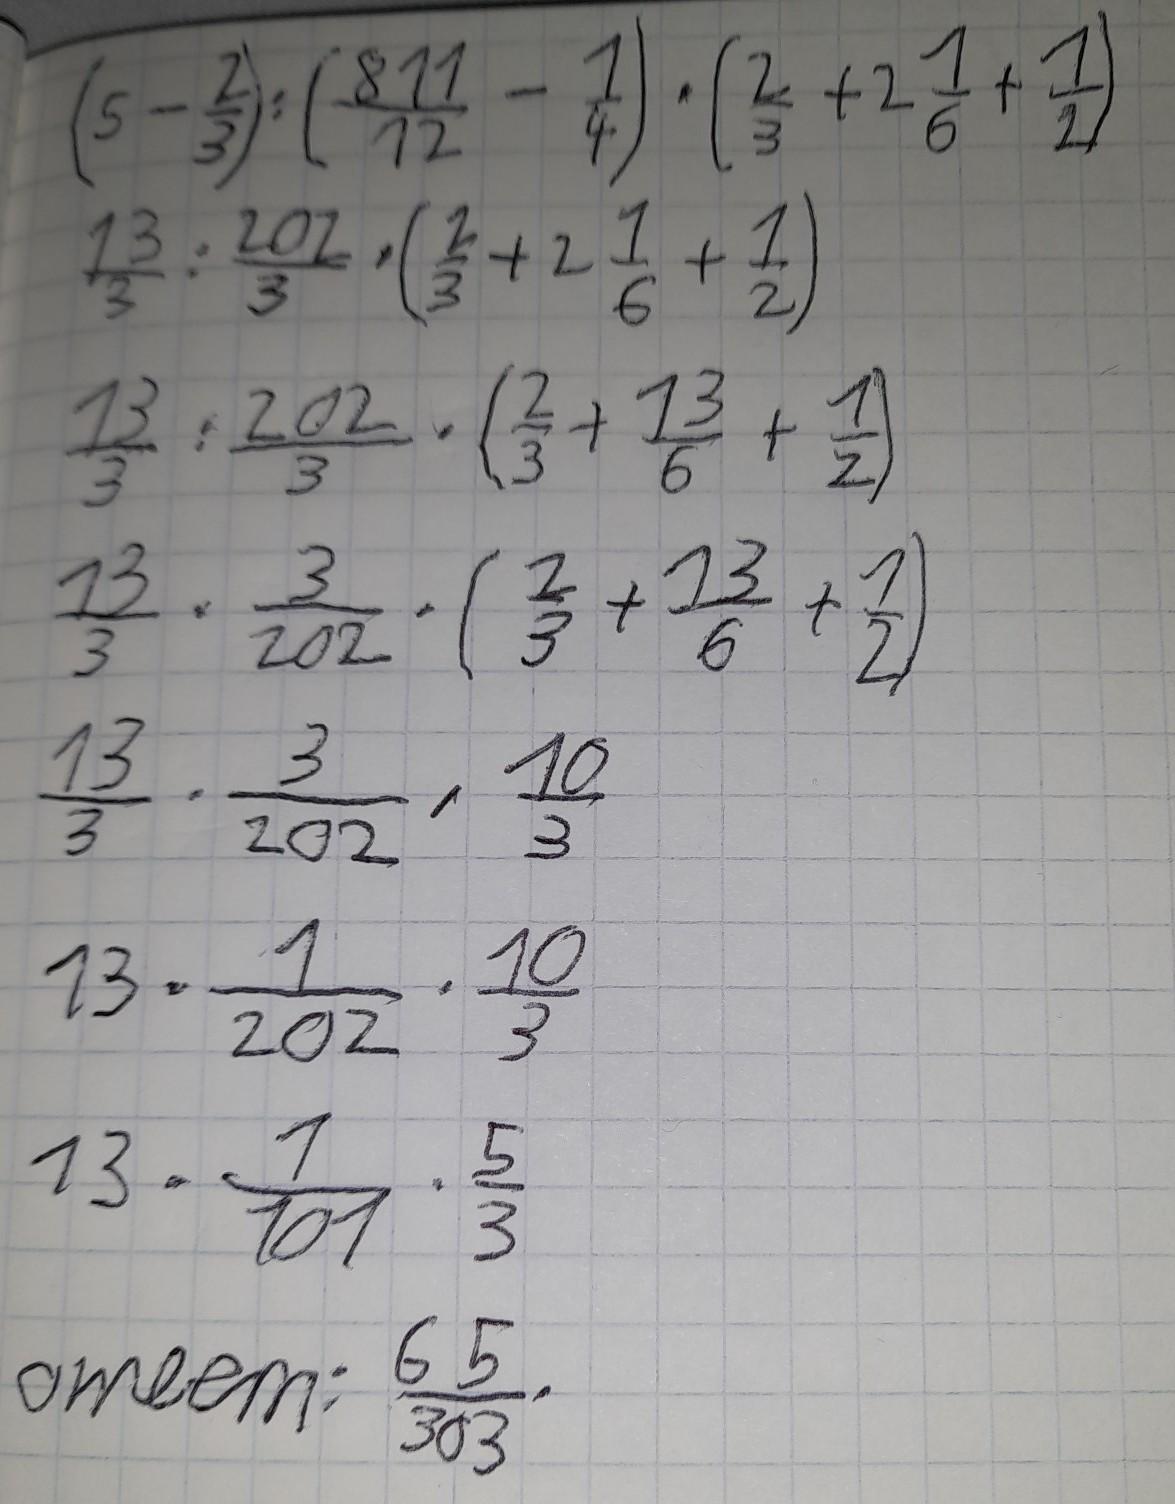 (5 - 2/3) : (811/12 - 1/4) · (2/3 + 2 1/6 + 1/2)
13/3 : 202/3 · (2/3 + 2 1/6 + 1/2)
13/3 : 202/3 · (2/3 + 13/6 + 1/2)
13/3 · 3/202 · (2/3 + 13/6 + 1/2)
13/3 · 3/202 · 10/3
13 · 1/202 · 10/3
13 · 1/101 · 5/3
ответ: 65/303.